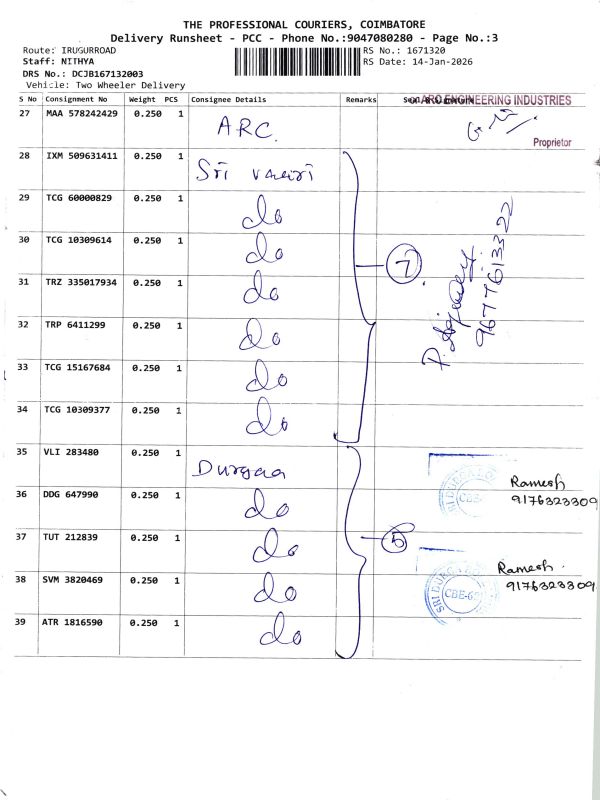 THE PROFESSIONAL COURIERS, COIMBATORE
Delivery Runsheet - PCC - Phone No.:9047080280 - Page No.:3
Route: IRUGURROAD
RS No.: 1671320
Staff: NITHYA
RS Date: 14-Jan-2026
DRS No.: DCJB167132003
Vehicle: Two Wheeler Delivery
S No Consignment No Weight PCS Consignee Details Remarks
ARC ENGINEERING INDUSTRIES
27 MAA 578242429 0.250 1 ARC
Proprietor
28 IXM 509631411 0.250 1 Sri
29 TCG 60000829 0.250 1 do
30 TCG 10309614 0.250 1 do
7
31 TRZ 335017934 0.250 1 do
32 TRP 6411299 0.250 1 do
33 TCG 15167684 0.250 1 do
34 TCG 10309377 0.250 1 do
9677613322
35 VLI 283480 0.250 1 Durgaa
Ramesh
9176323309
36 DDG 647990 0.250 1 do
37 TUT 212839 0.250 1 do
5
38 SVM 3820469 0.250 1 do
Ramesh.
9176323309
39 ATR 1816590 0.250 1 do